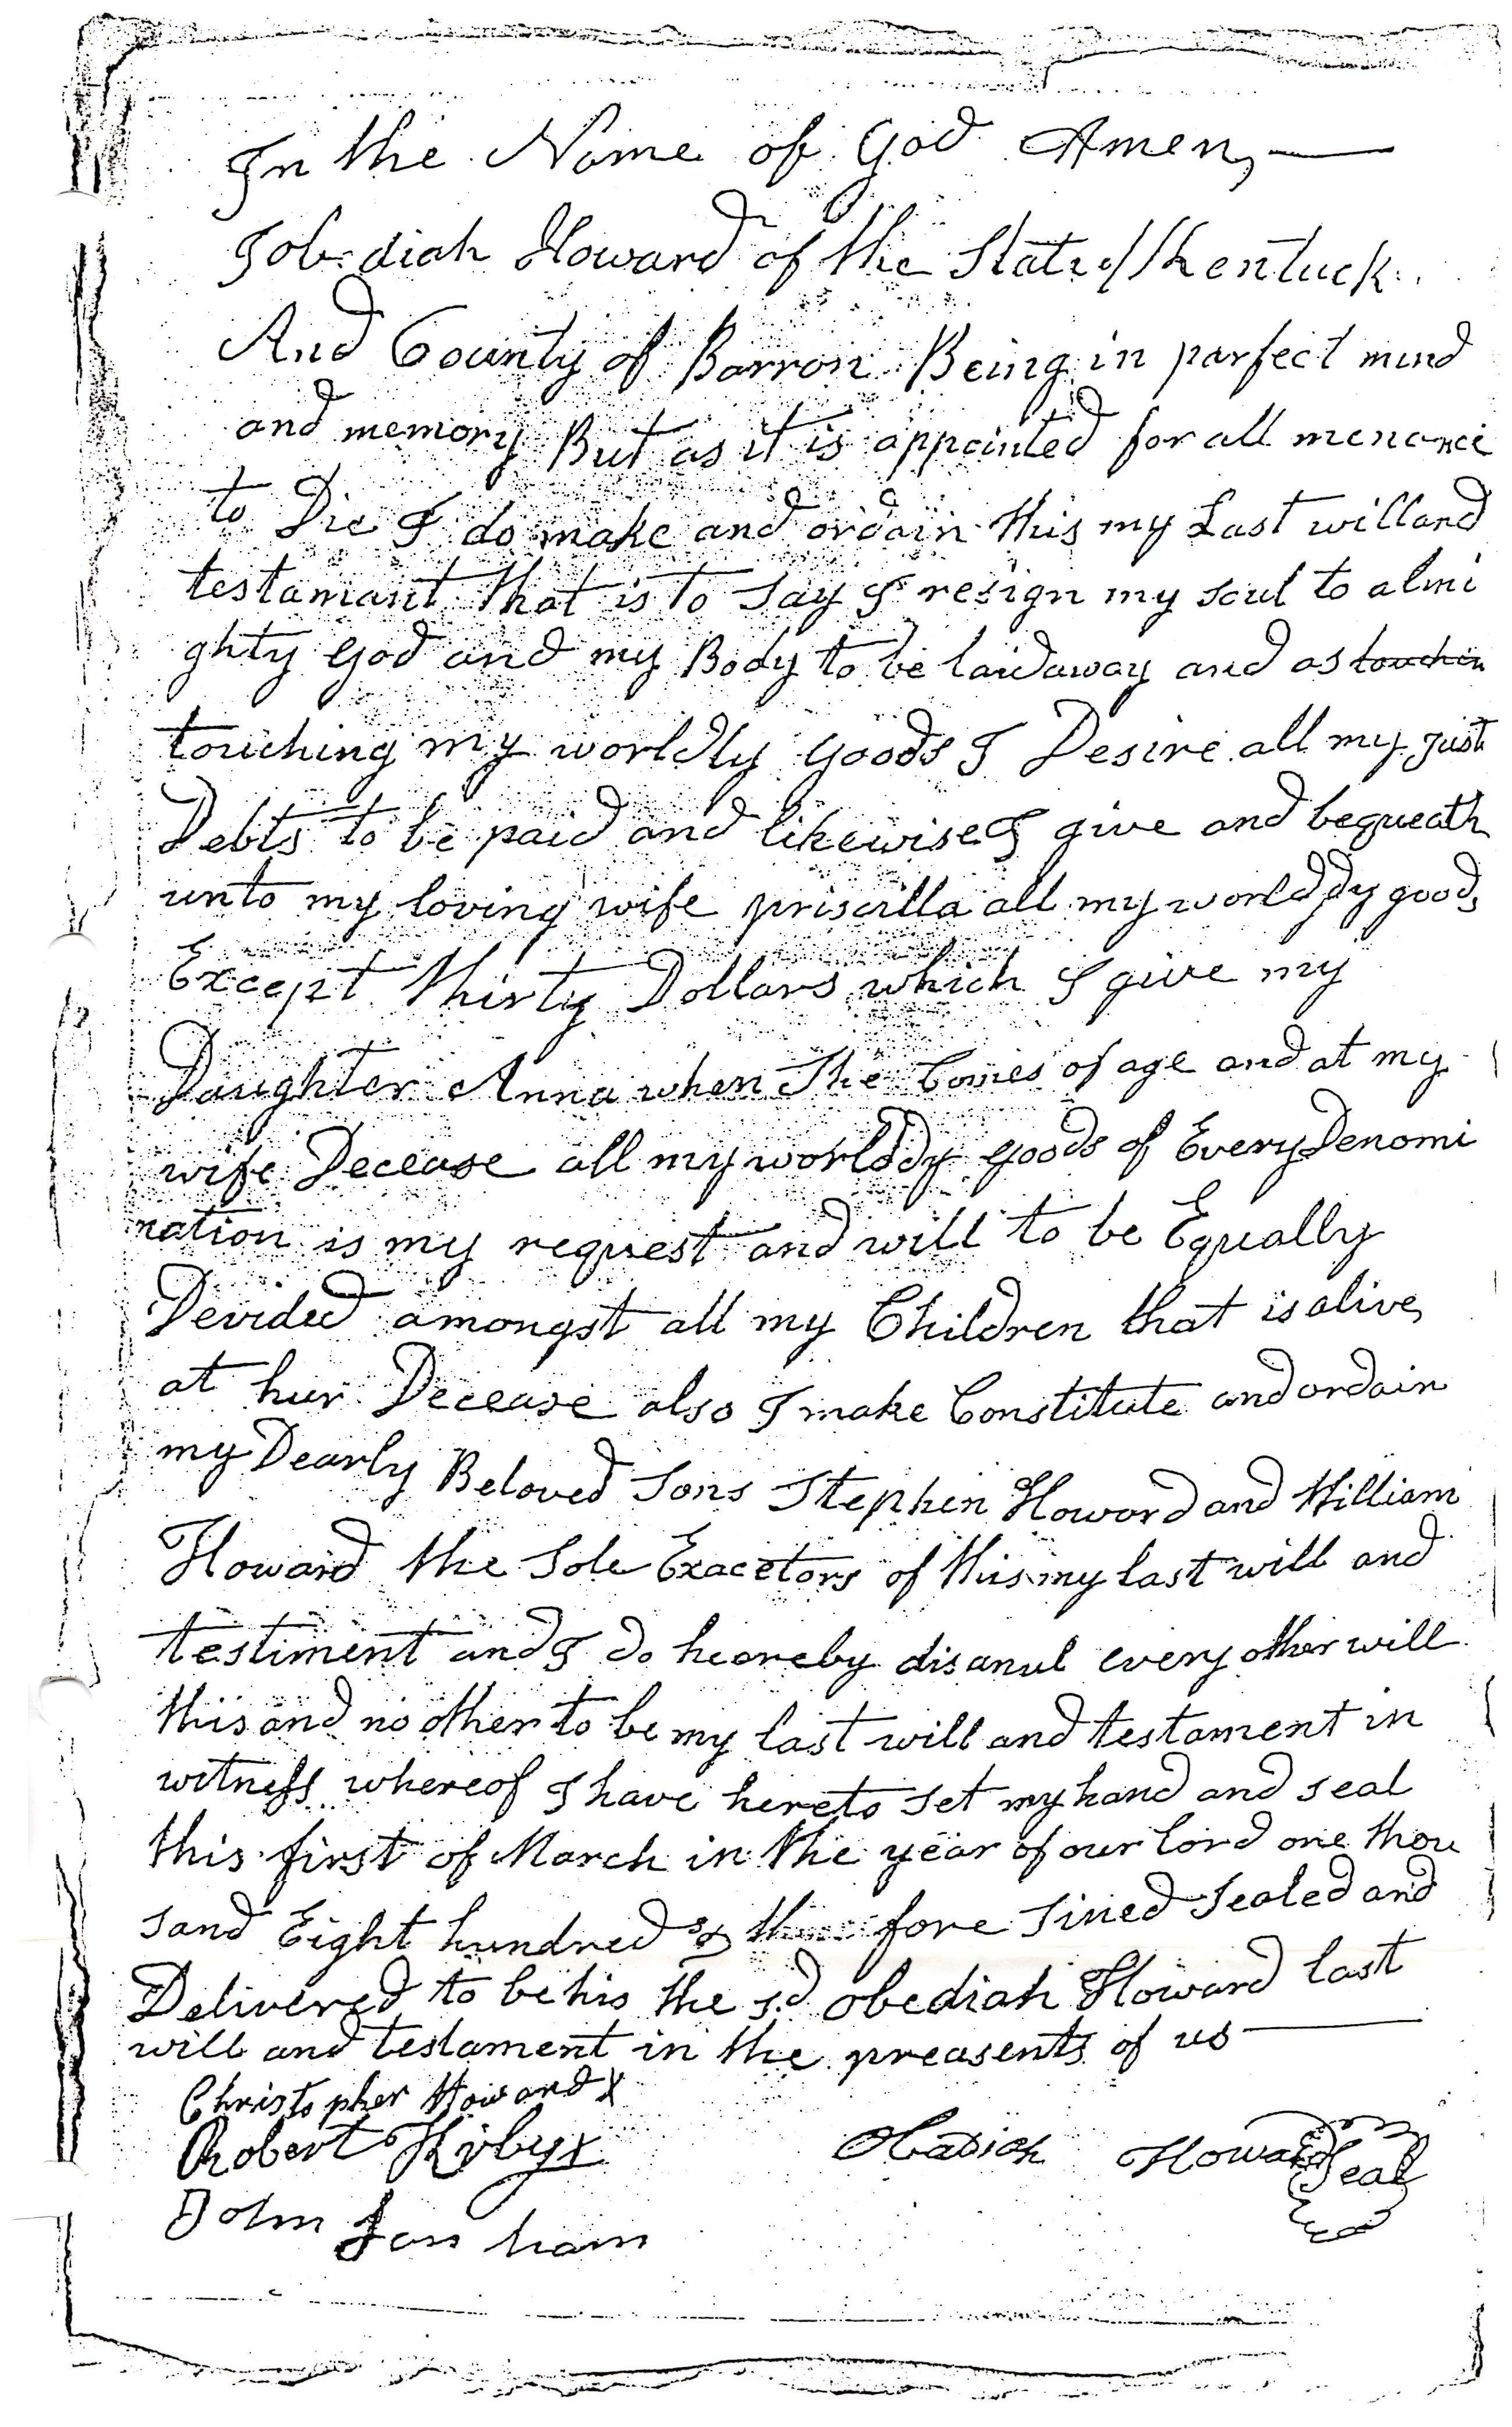 In the Name of God Amen,
I ob diah Howard of the State of Kentuck
And County of Barron Being in parfect mind
and memory But as it is appointed for all men once
to Die I do make and ordain this my Last will and
testamant that is to say I resign my soul to almi
ghty God and my Body to be laid away and as touchin
touching my worldly goods I Desire all my just
Debts to be paid and likewise I give and bequeath
unto my loving wife priscilla all my worlddy goods
Except thirty Dollars which I give my
Daughter Anna when She Comes of age and at my
wife Decease all my worlddy goods of Every Denomi
nation is my request and will to be Equally
Devided amongst all my Children that is alive
at hur Decease also I make Constitute and ordain
my Dearly Beloved Sons Stephen Howard and William
Howard the Sole Exacetors of this my last will and
testiment and I do heereby disanul every other will
this and no other to be my last will and testament in
witness whereof I have hereto set my hand and seal
this first of March in the year of our lord one thou
sand Eight hundred & fore Sined Sealed and
Delivered to be his the sd obediah Howard last
will and testament in the preasents of us
Christopher Howard X
Robert Kirby X
Obadiah Howard Seal
John